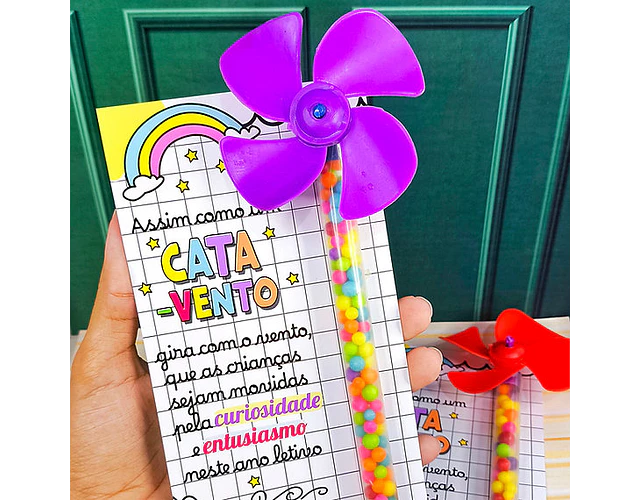 Assim como um
CATA
-VENTO
gira com o vento,
que as crianças
sejam movidas
pela curiosidade
e entusiasmo
neste ano letivo
como um
TA
TO
vento,
crianças
movidas